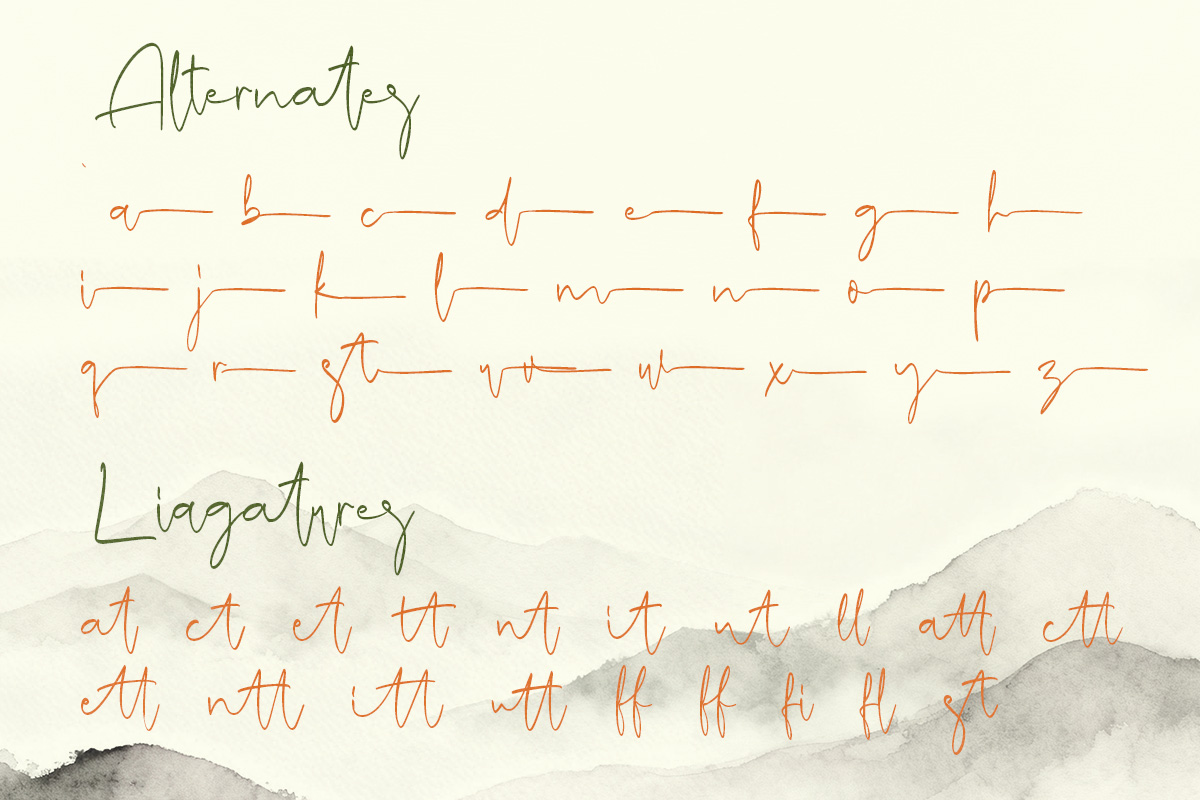 Alternates
a b c d e f g h
i j k l m n o p
q r st v w x y z
Liagatures
at ct et tt nt it ut ll att ctt
ett ntt itt utt ff ff fi fl st